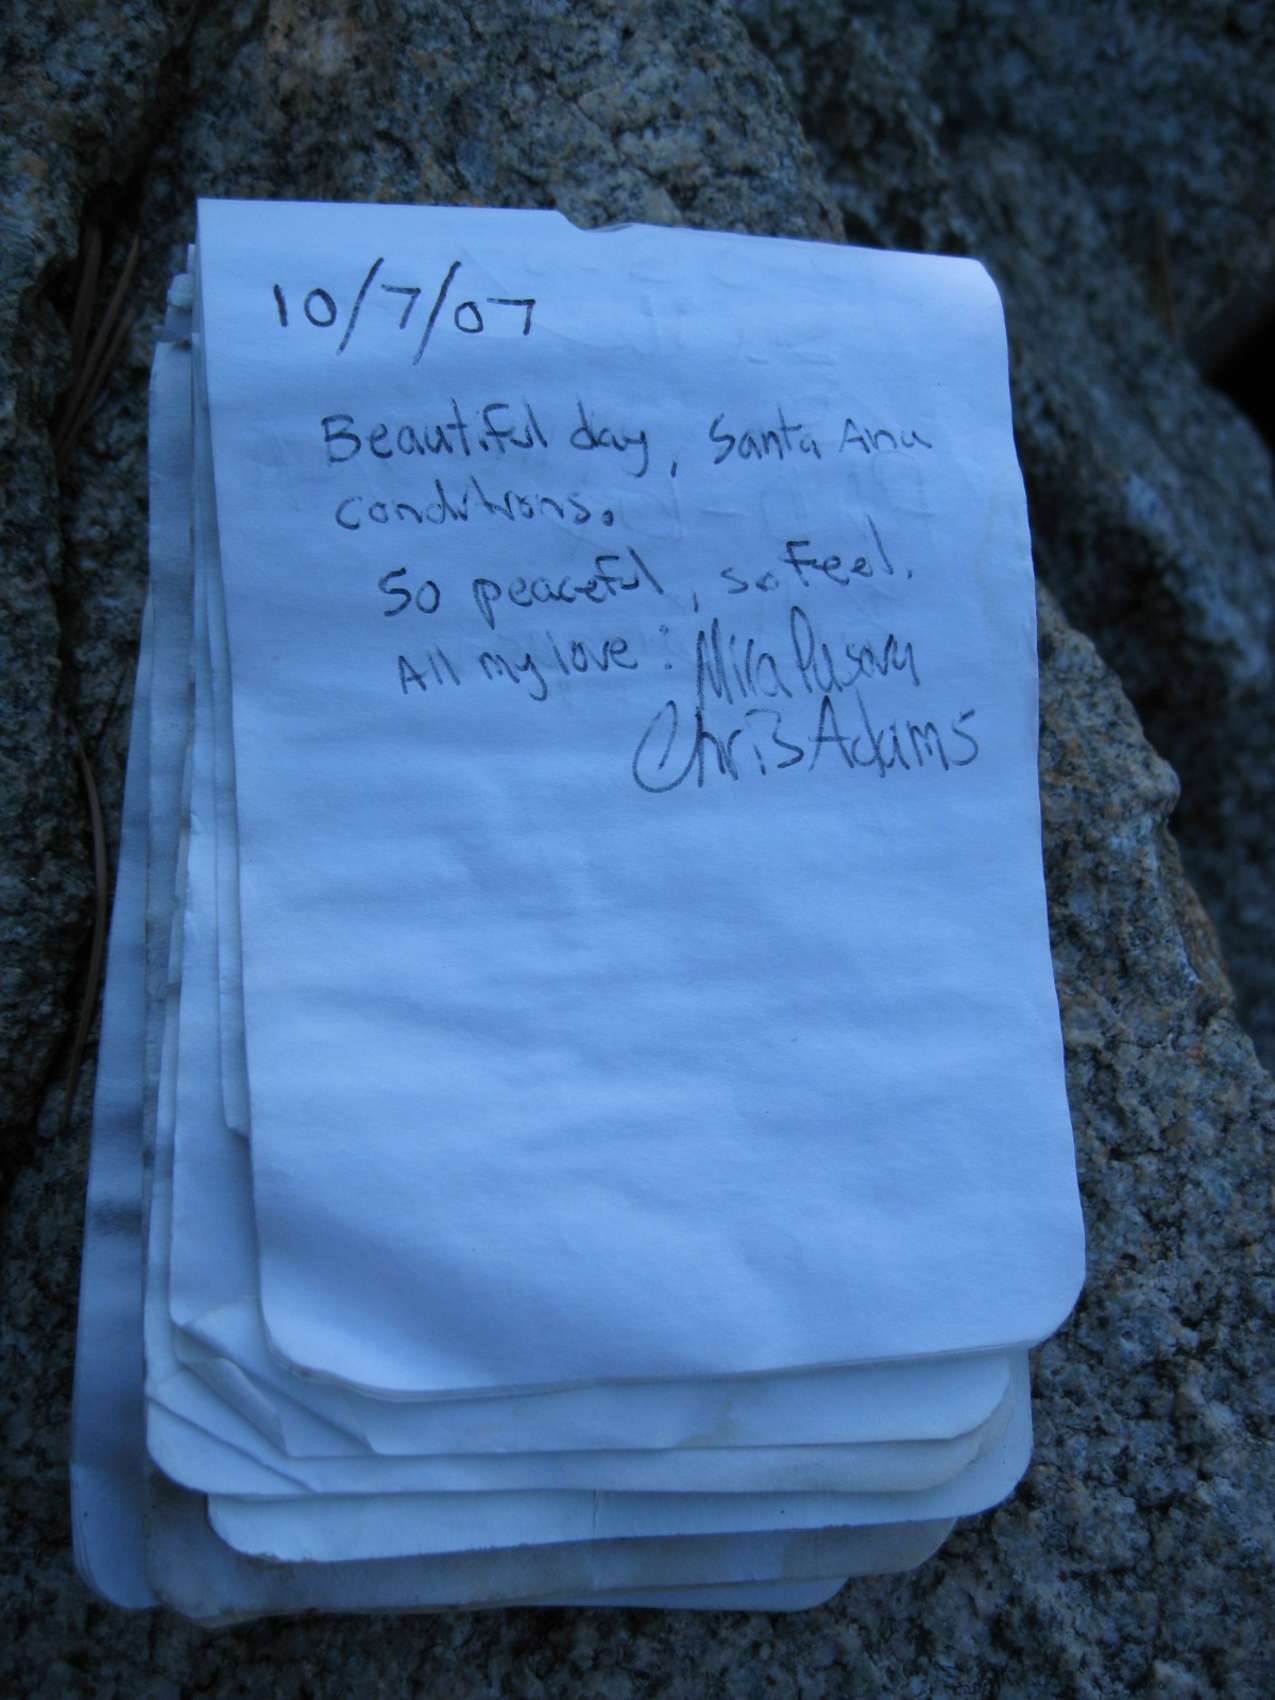 10/7/07
Beautiful day, Santa Ana
conditions.
So peaceful, so feel.
All my love: Mira
Chris Adams